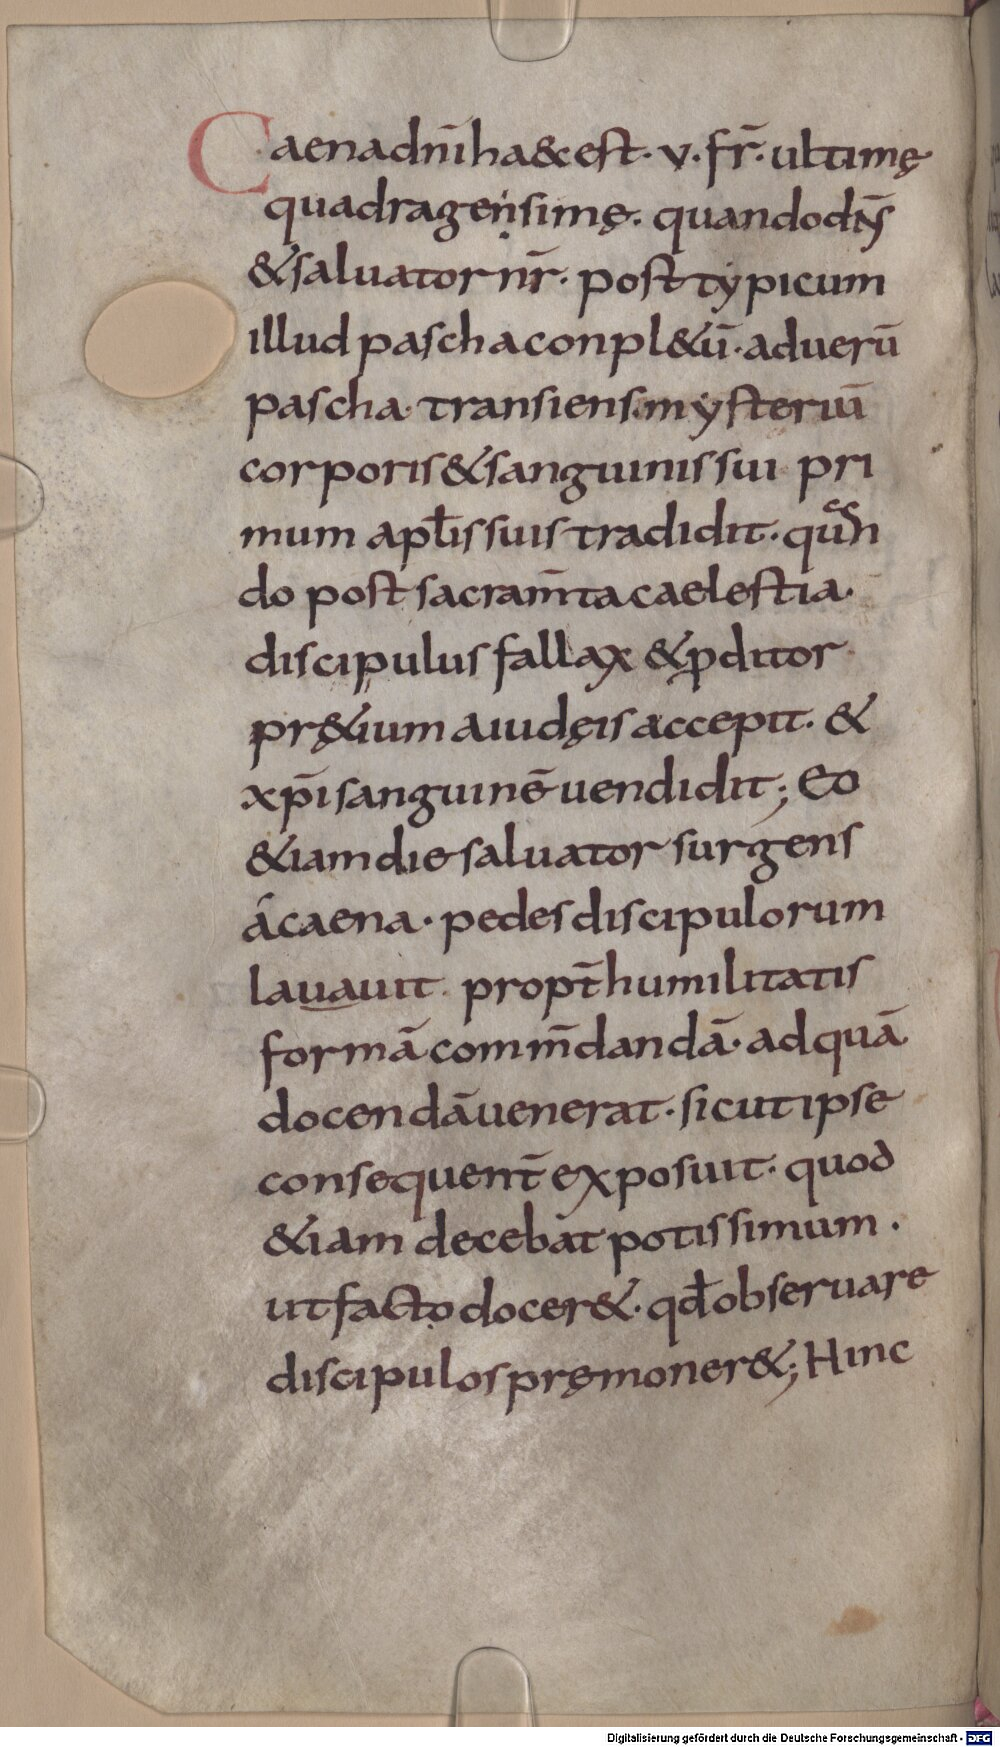 Caena dn̄i haec est. v. fr̄. ultimę
quadragensimę. quando dn̄s
&saluator nr̄. post typicum
illud pascha conpl&ū. ad uerū
pascha transiens. mysteriū
corporis & sanguinis sui pri
mum apl̄is suis tradidit. quan
do post sacram̄ta caelestia.
discipulus fallax & ꝓditor
pr&̨ium a iudęis accepit. &
xp̄i sanguinē uendidit; Eo
&iam die saluator surgens
á caena. pedes discipulorum
lauauit. propt̄ humilitatis
formā comm̄dandā. ad quā
docendā uenerat. sicut ipse
consequent̄ exposuit. quod
&iam decebat potissimum.
ut facto docer&. qđ obseruare
discipulos pręmoner&; Hinc
Digitalisierung gefördert durch die Deutsche Forschungsgemeinschaft - DFG